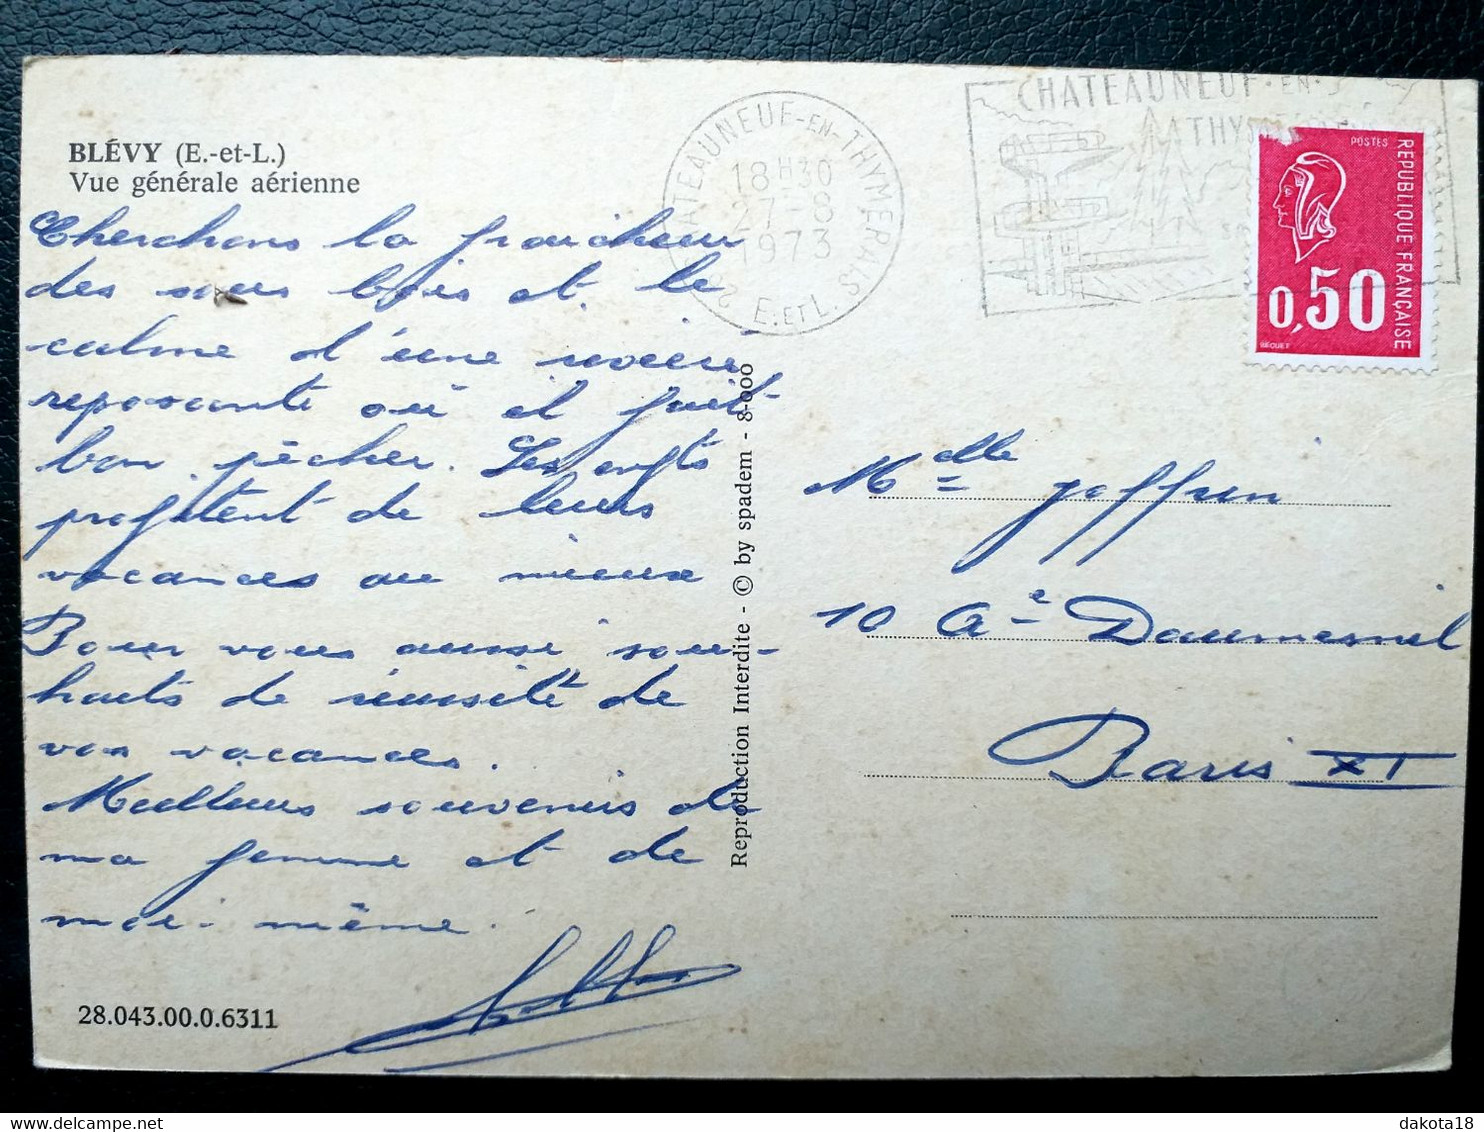 BLÉVY (E.-et-L.)
Vue générale aérienne
Cherchons la fraicheur
des sous bois et le
calme d'une rivière
reposante où il fait
bon pêcher. Les enfts
profitent de leurs
vacances au mieux
Pour vous aussi sou-
haits de réussite de
vos vacances.
Meilleurs souvenirs de
ma femme et de
moi-même.
28.043.00.0.6311
Reproduction Interdite - © by spadem - 8-000
CHATEAUNEUF-EN-THYMERAIS
18 H30
27-8
1973
28 E.ETL.
CHATEAUNEUF-EN-
THYMERAIS
POSTES
REPUBLIQUE FRANÇAISE
0,50
BEQUET
Melle Joffrin
10 Ae Daumesnil
Paris XI
dakota18